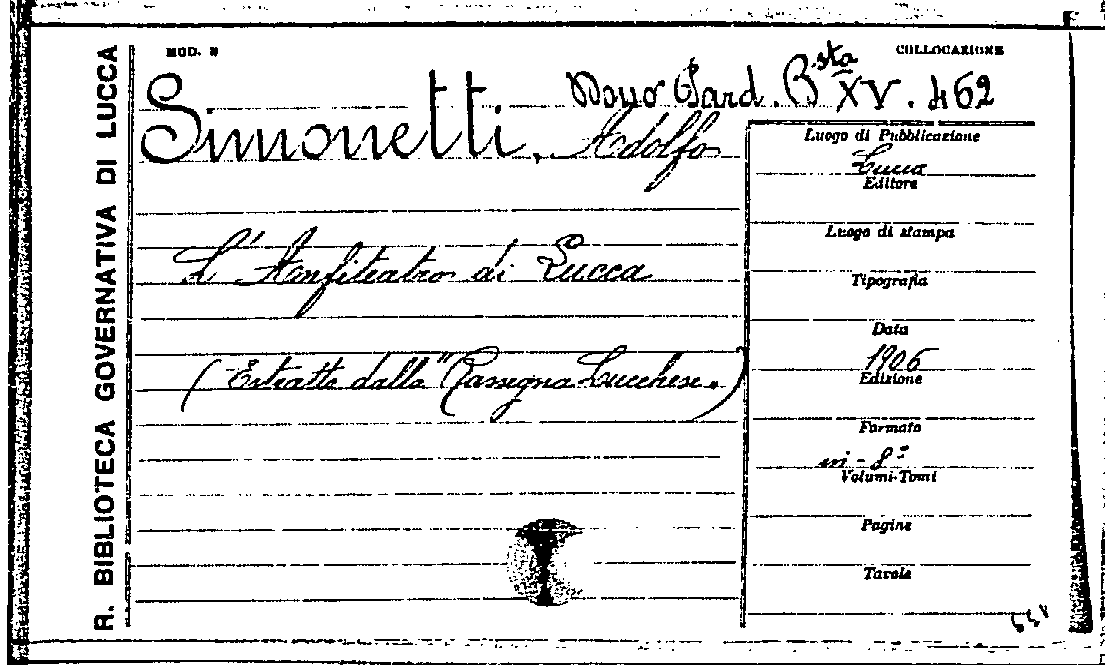 R. BIBLIOTECA GOVERNATIVA DI LUCCA
MOD. N
COLLOCAZIONE
Dono Sard. Bsta XV. 462
Simonetti, Adolfo
L'Anfiteatro di Lucca
(Estratto dalla "Rassegna Lucchese.)
Luogo di Pubblicazione
Lucca
Editore
Luogo di stampa
Tipografia
Data
1906
Edizione
Formato
in-8º
Volumi-Tomi
Pagine
Tavole